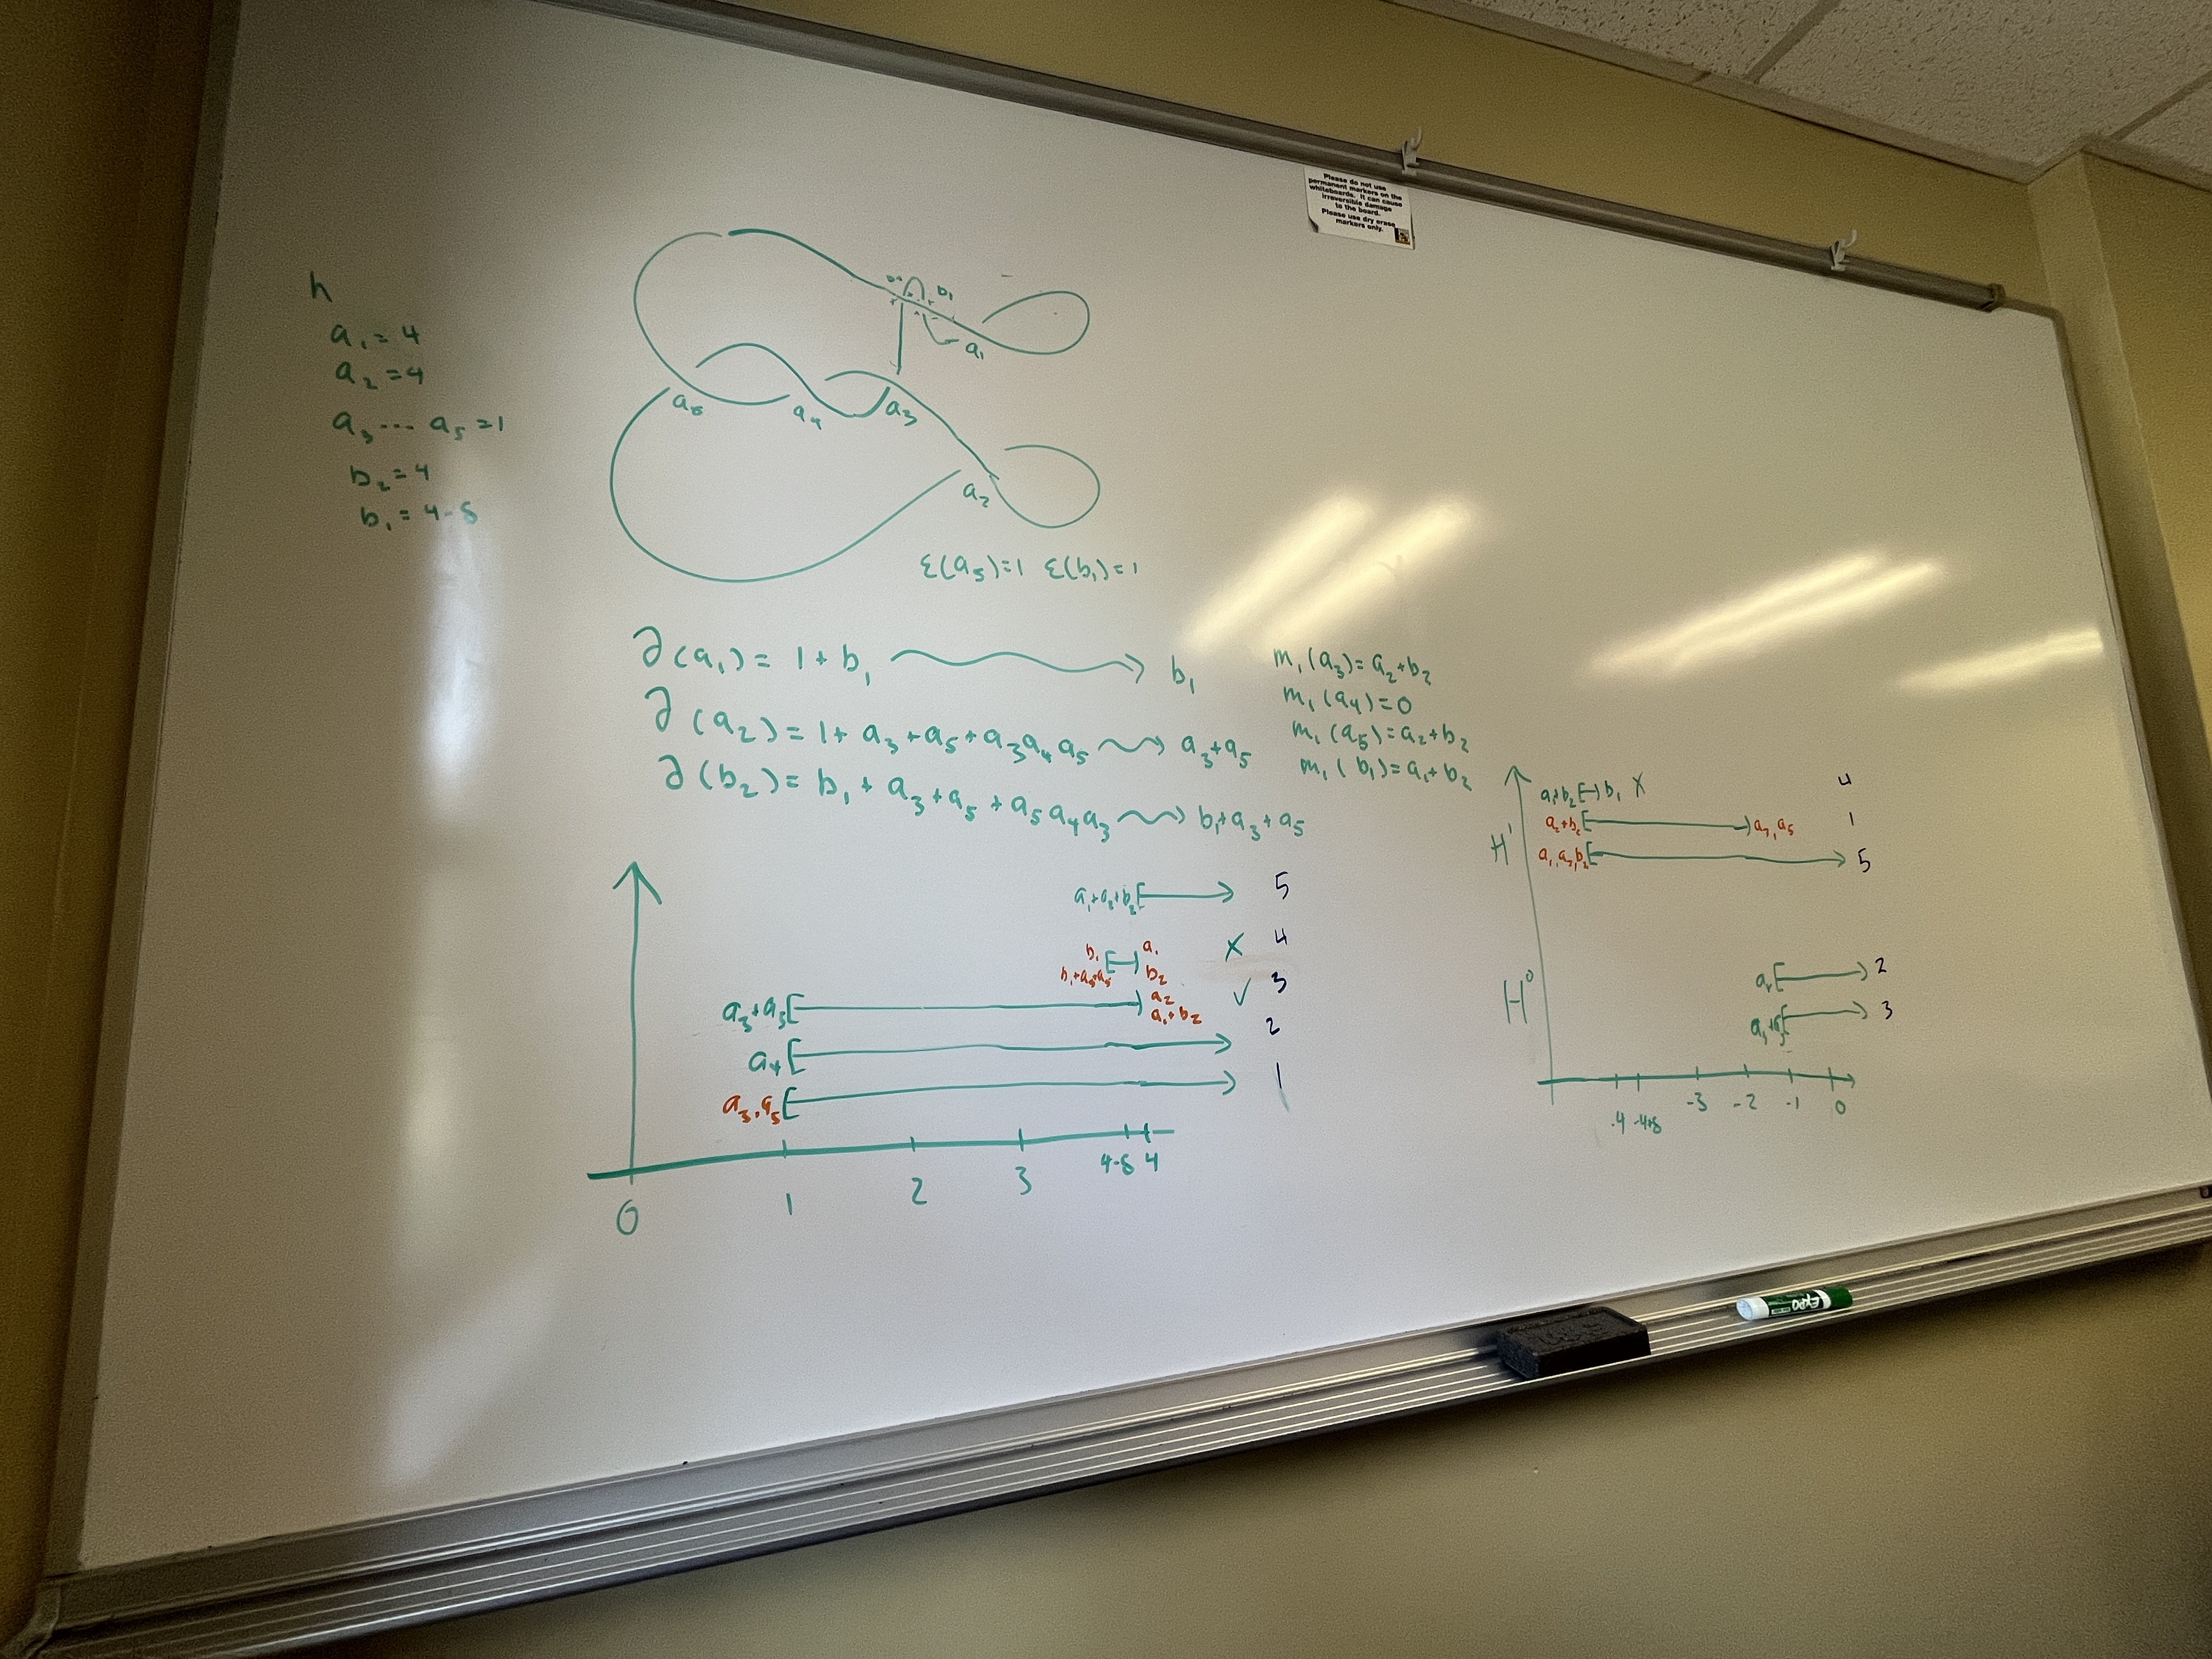 Please do not use
permanent markers on the
whiteboards. It can cause
irreversible damage
to the board.
Please use dry erase
markers only.
h
a₁ = 4
a₂ = 4
a₃ ... a₅ = 1
b₂ = 4
b₁ = 4-δ
b₁
a₁
a₅
a₄
a₃
a₂
ε(a₅)=1 ε(b₁)=1
∂(a₁) = 1 + b₁ → b₁
∂(a₂) = 1 + a₃ + a₅ + a₃a₄a₅ → a₃+a₅
∂(b₂) = b₁ + a₃ + a₅ + a₅a₄a₃ → b₁+a₃+a₅
m₁(a₃) = a₂+b₂
m₁(a₄) = 0
m₁(a₅) = a₂+b₂
m₁(b₁) = a₁+b₂
a₁+a₂+b₂ [→ 5
b₁ a₁
b₁+a₃+a₅ b₂ X 4
a₃+a₅ [ ) a₂ ✓ 3
a₁+b₂
a₄ [→ 2
a₃,a₅ [→ 1
0 1 2 3 4-δ 4
H¹
a₁+b₂ [→) b₁ X 4
a₂+b₂ [ ) a₃,a₅ 1
a₁,a₂,b₂ [→ 5
H⁰
a₄ [→ 2
a₃+a₅ [→ 3
-4 -4+δ -3 -2 -1 0
EXPO